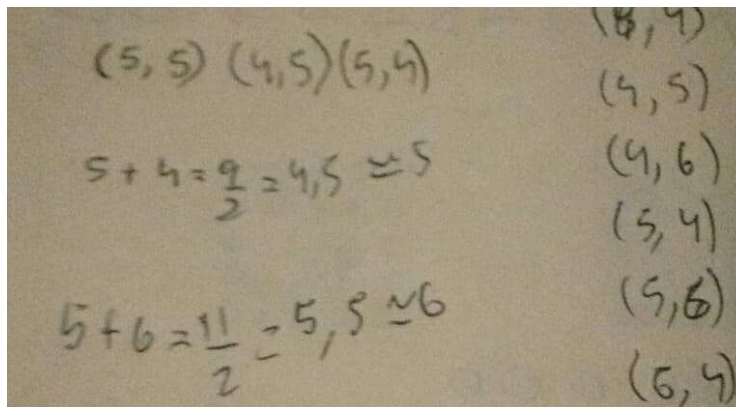 (5,5) (4,5)(5,4)
5+4=9/2=4,5≃5
5+6=11/2=5,5≃6
(4,5)
(4,6)
(5,4)
(5,6)
(6,4)